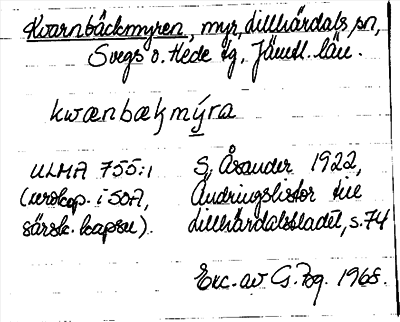 Kvarnbäckmyren, myr, Lillhärdals sn,
Svegs o. Hede tg, Jämtl. län.
kwænbækmýra
ULMA 755:1
(xerokop. i SOA,
särsk. kapsel).
S. Åsander 1922,
Ändringslistor till
Lillhärdalsbladet, s. 74
Exc. av G. 1968.